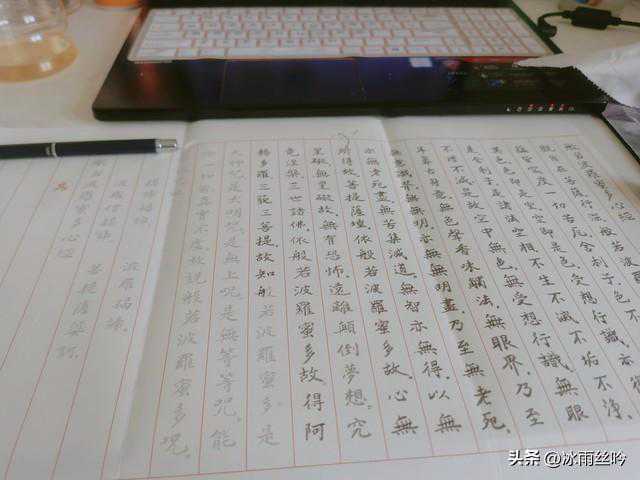 般若波羅蜜多心經
觀自在菩薩行深般若波
蘊皆空度一切苦厄舍利子色不
異色色即是空空即是色受想行識亦
是舍利子是諸法空相不生不滅不垢不淨
不增不減是故空中無色無受想行識無眼
耳鼻舌身意無色聲香味觸法無眼界乃至
無意識界無無明亦無無明盡乃至無老死
亦無老死盡無苦集滅道無智亦無得以無
所得故菩提薩埵依般若波羅蜜多故心無
罣礙無罣礙故無有恐怖遠離顛倒夢想究
竟涅槃三世諸佛依般若波羅蜜多故得阿
耨多羅三藐三菩提故知般若波羅蜜多是
大神咒是大明咒是無上咒是無等等咒能
除一切苦真實不虛故說般若波羅蜜多咒
揭諦揭諦 波羅揭諦
波羅僧揭諦 菩提薩婆訶
般若波羅蜜多心經
头条 @冰雨丝吟